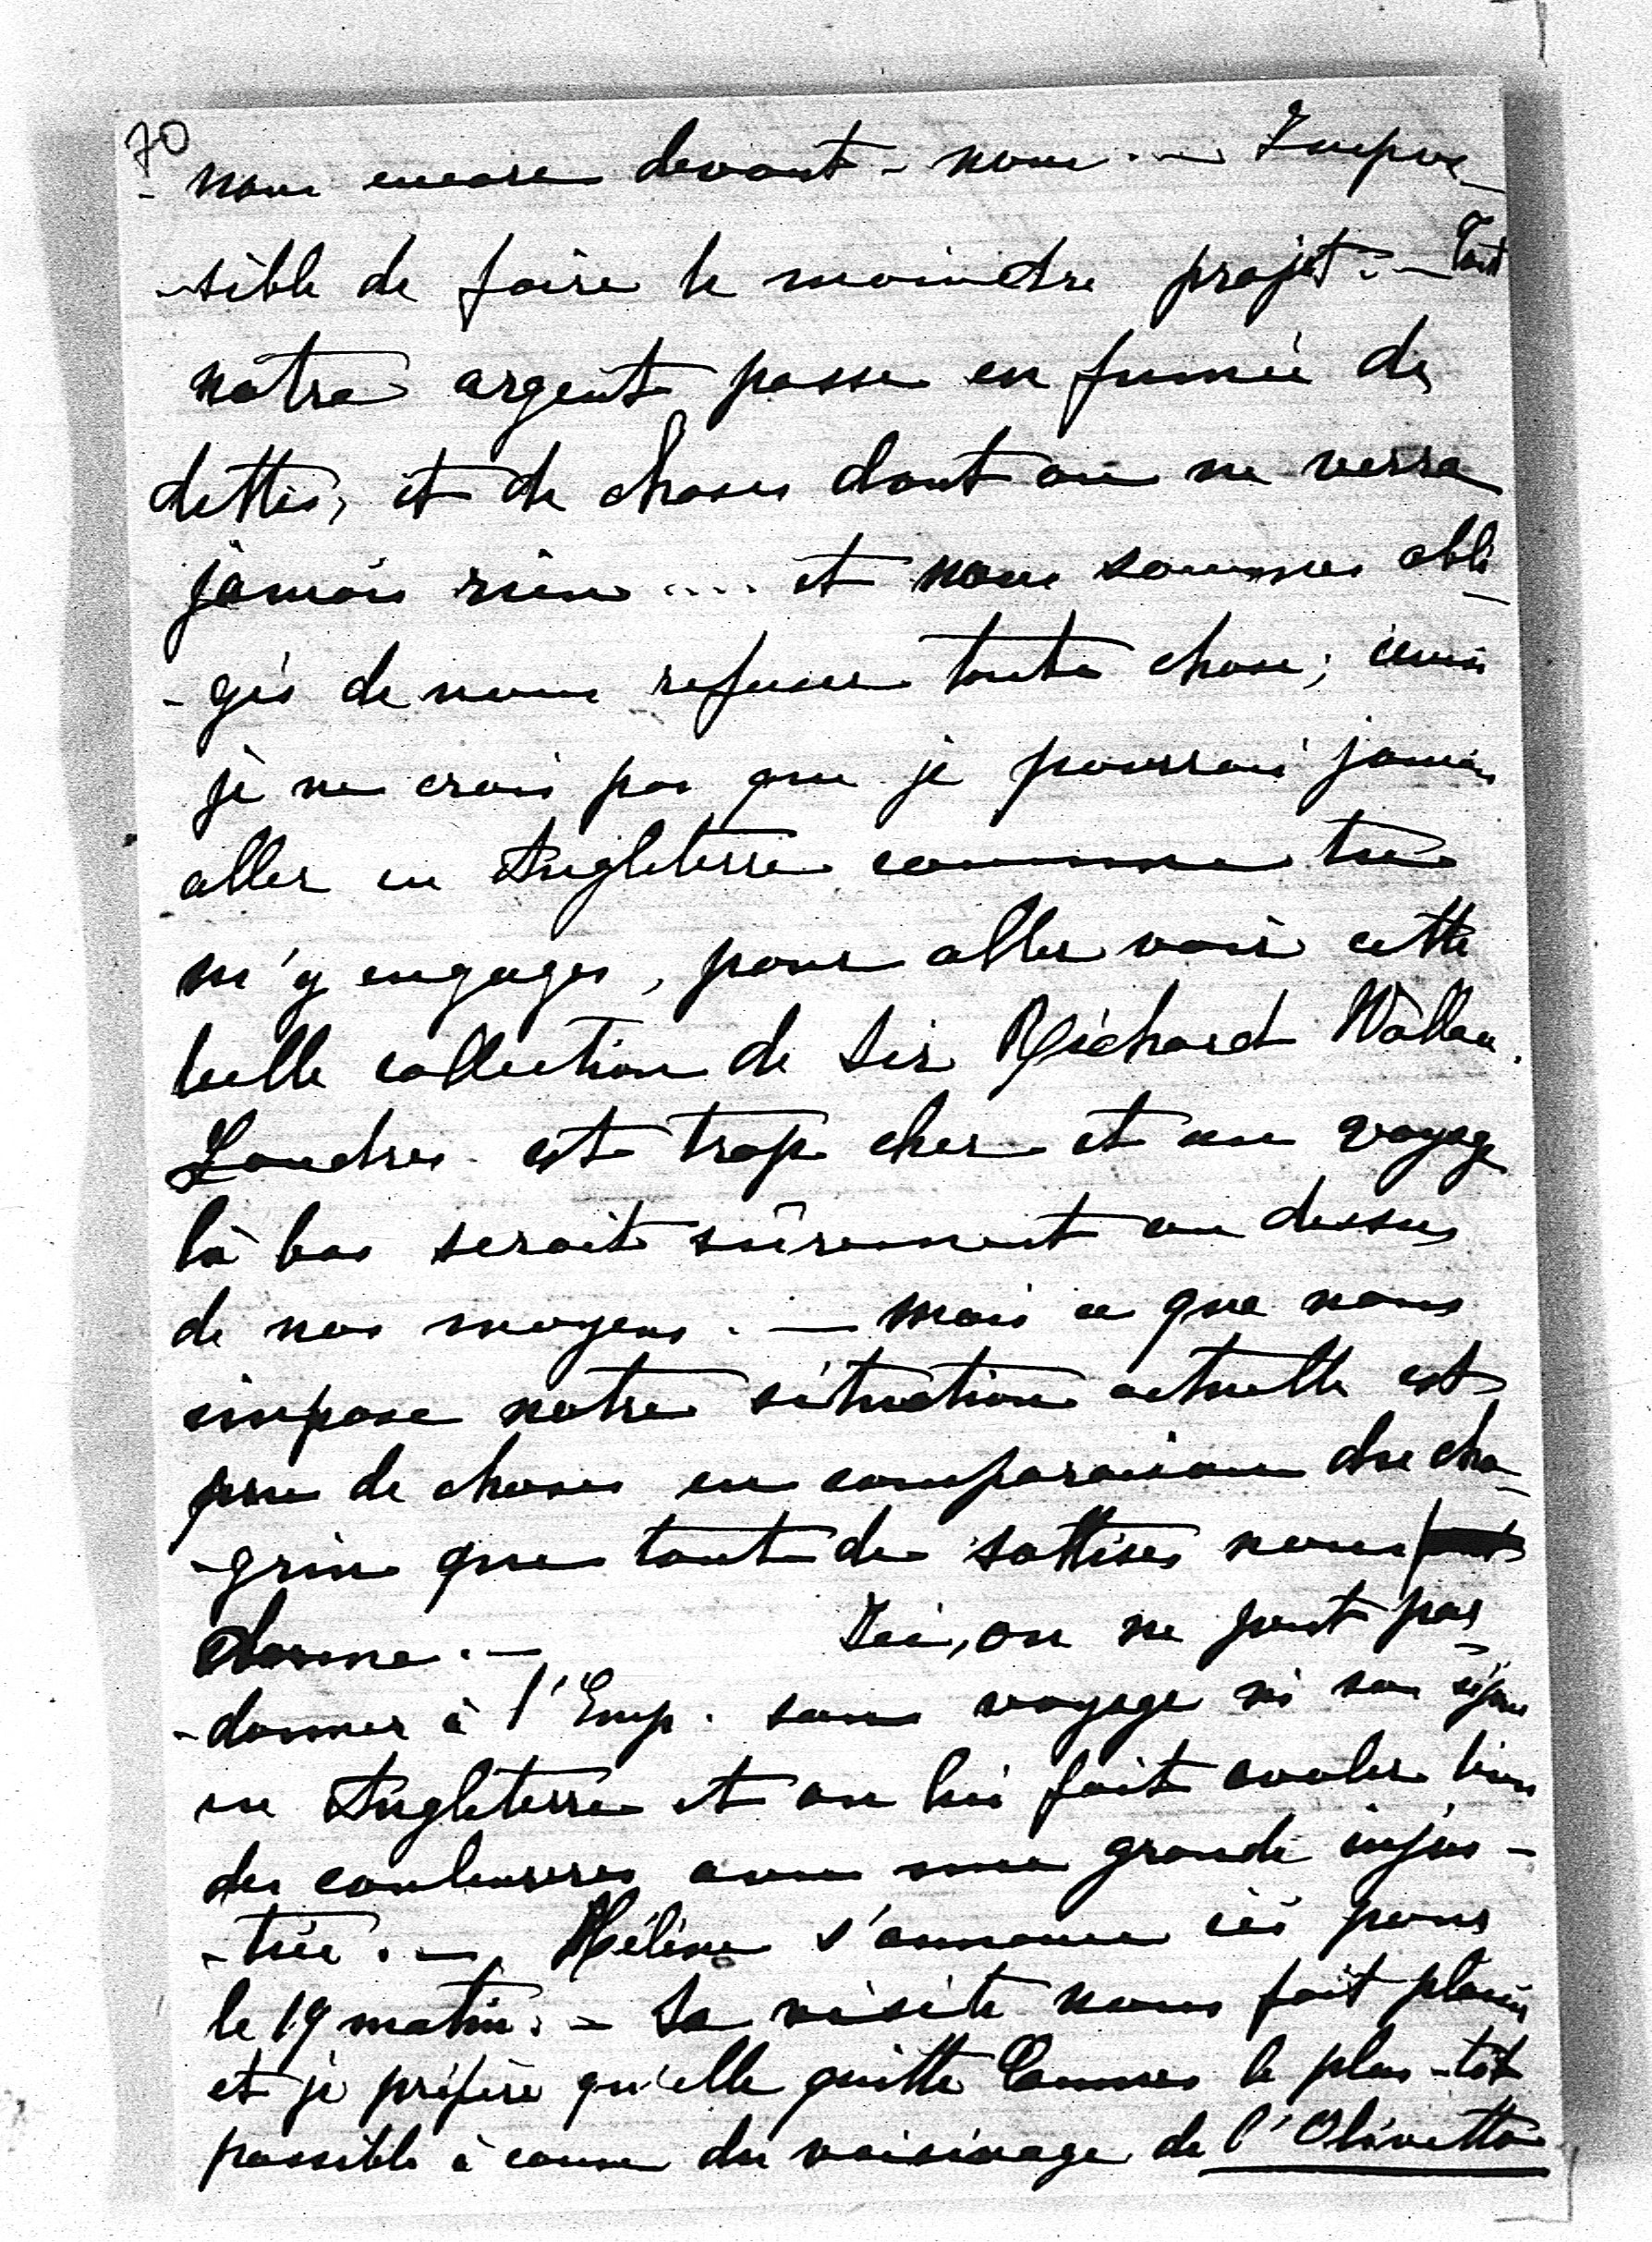 70
- nous encore devant-nous. — Impos-
-sible de faire le moindre projet. — Tout
notre argent passe en fumée de
dettes, et de choses dont on ne verra
jamais rien .... et nous sommes obli-
-gés de nous refuser toute chose; aussi
je ne crois pas que je pourrai jamais
aller en Angleterre comme tu
m'y engages, pour aller voir cette
belle collection de Sir Richard Wallace.
Londres est trop cher et un voyage
là bas serait sûrement au dessus
de nos moyens. — Mais ce que nous
impose notre situation actuelle est
peu de choses en comparaison du cha-
-grin que tout de sottises nous
donne. — Ici, on ne peut par-
-donner à l'Emp. son voyage ni son séjour
en Angleterre et on lui fait avaler bien
des couleuvres avec une grande injus-
-tice. — Hélène s'annonce ici pour
le 19 matin. — Sa visite nous fait plaisir
et je préfère qu'elle quitte Cannes le plus-tôt
possible à cause du voisinage de l'Olivetto